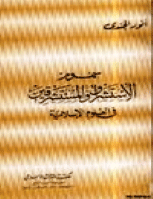 انور الجندى
سموم
الاستشراق والمستشرقين
فى العلوم الإسلامية